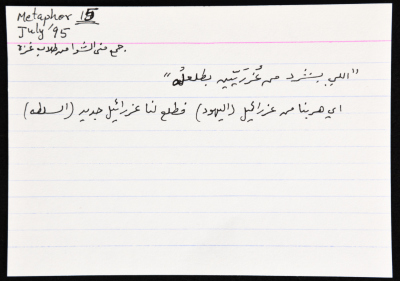 Metaphor 15
July '95
جمع منى الشوا من طلاب غزة.
"اللي بيشرد من عُزرَيِّين بطلعلُه"
اي هربنا من عزرائيل (اليهود) فطلع لنا عزرائيل جديد (السلطه)